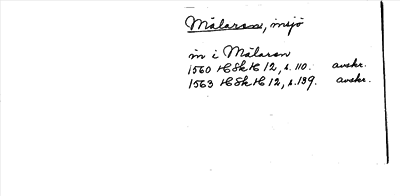 Mälaren, insjö
in i Mälaren
1560 HSkH 12, s. 110. avskr.
1563 HSkH 12, s. 139. avskr.